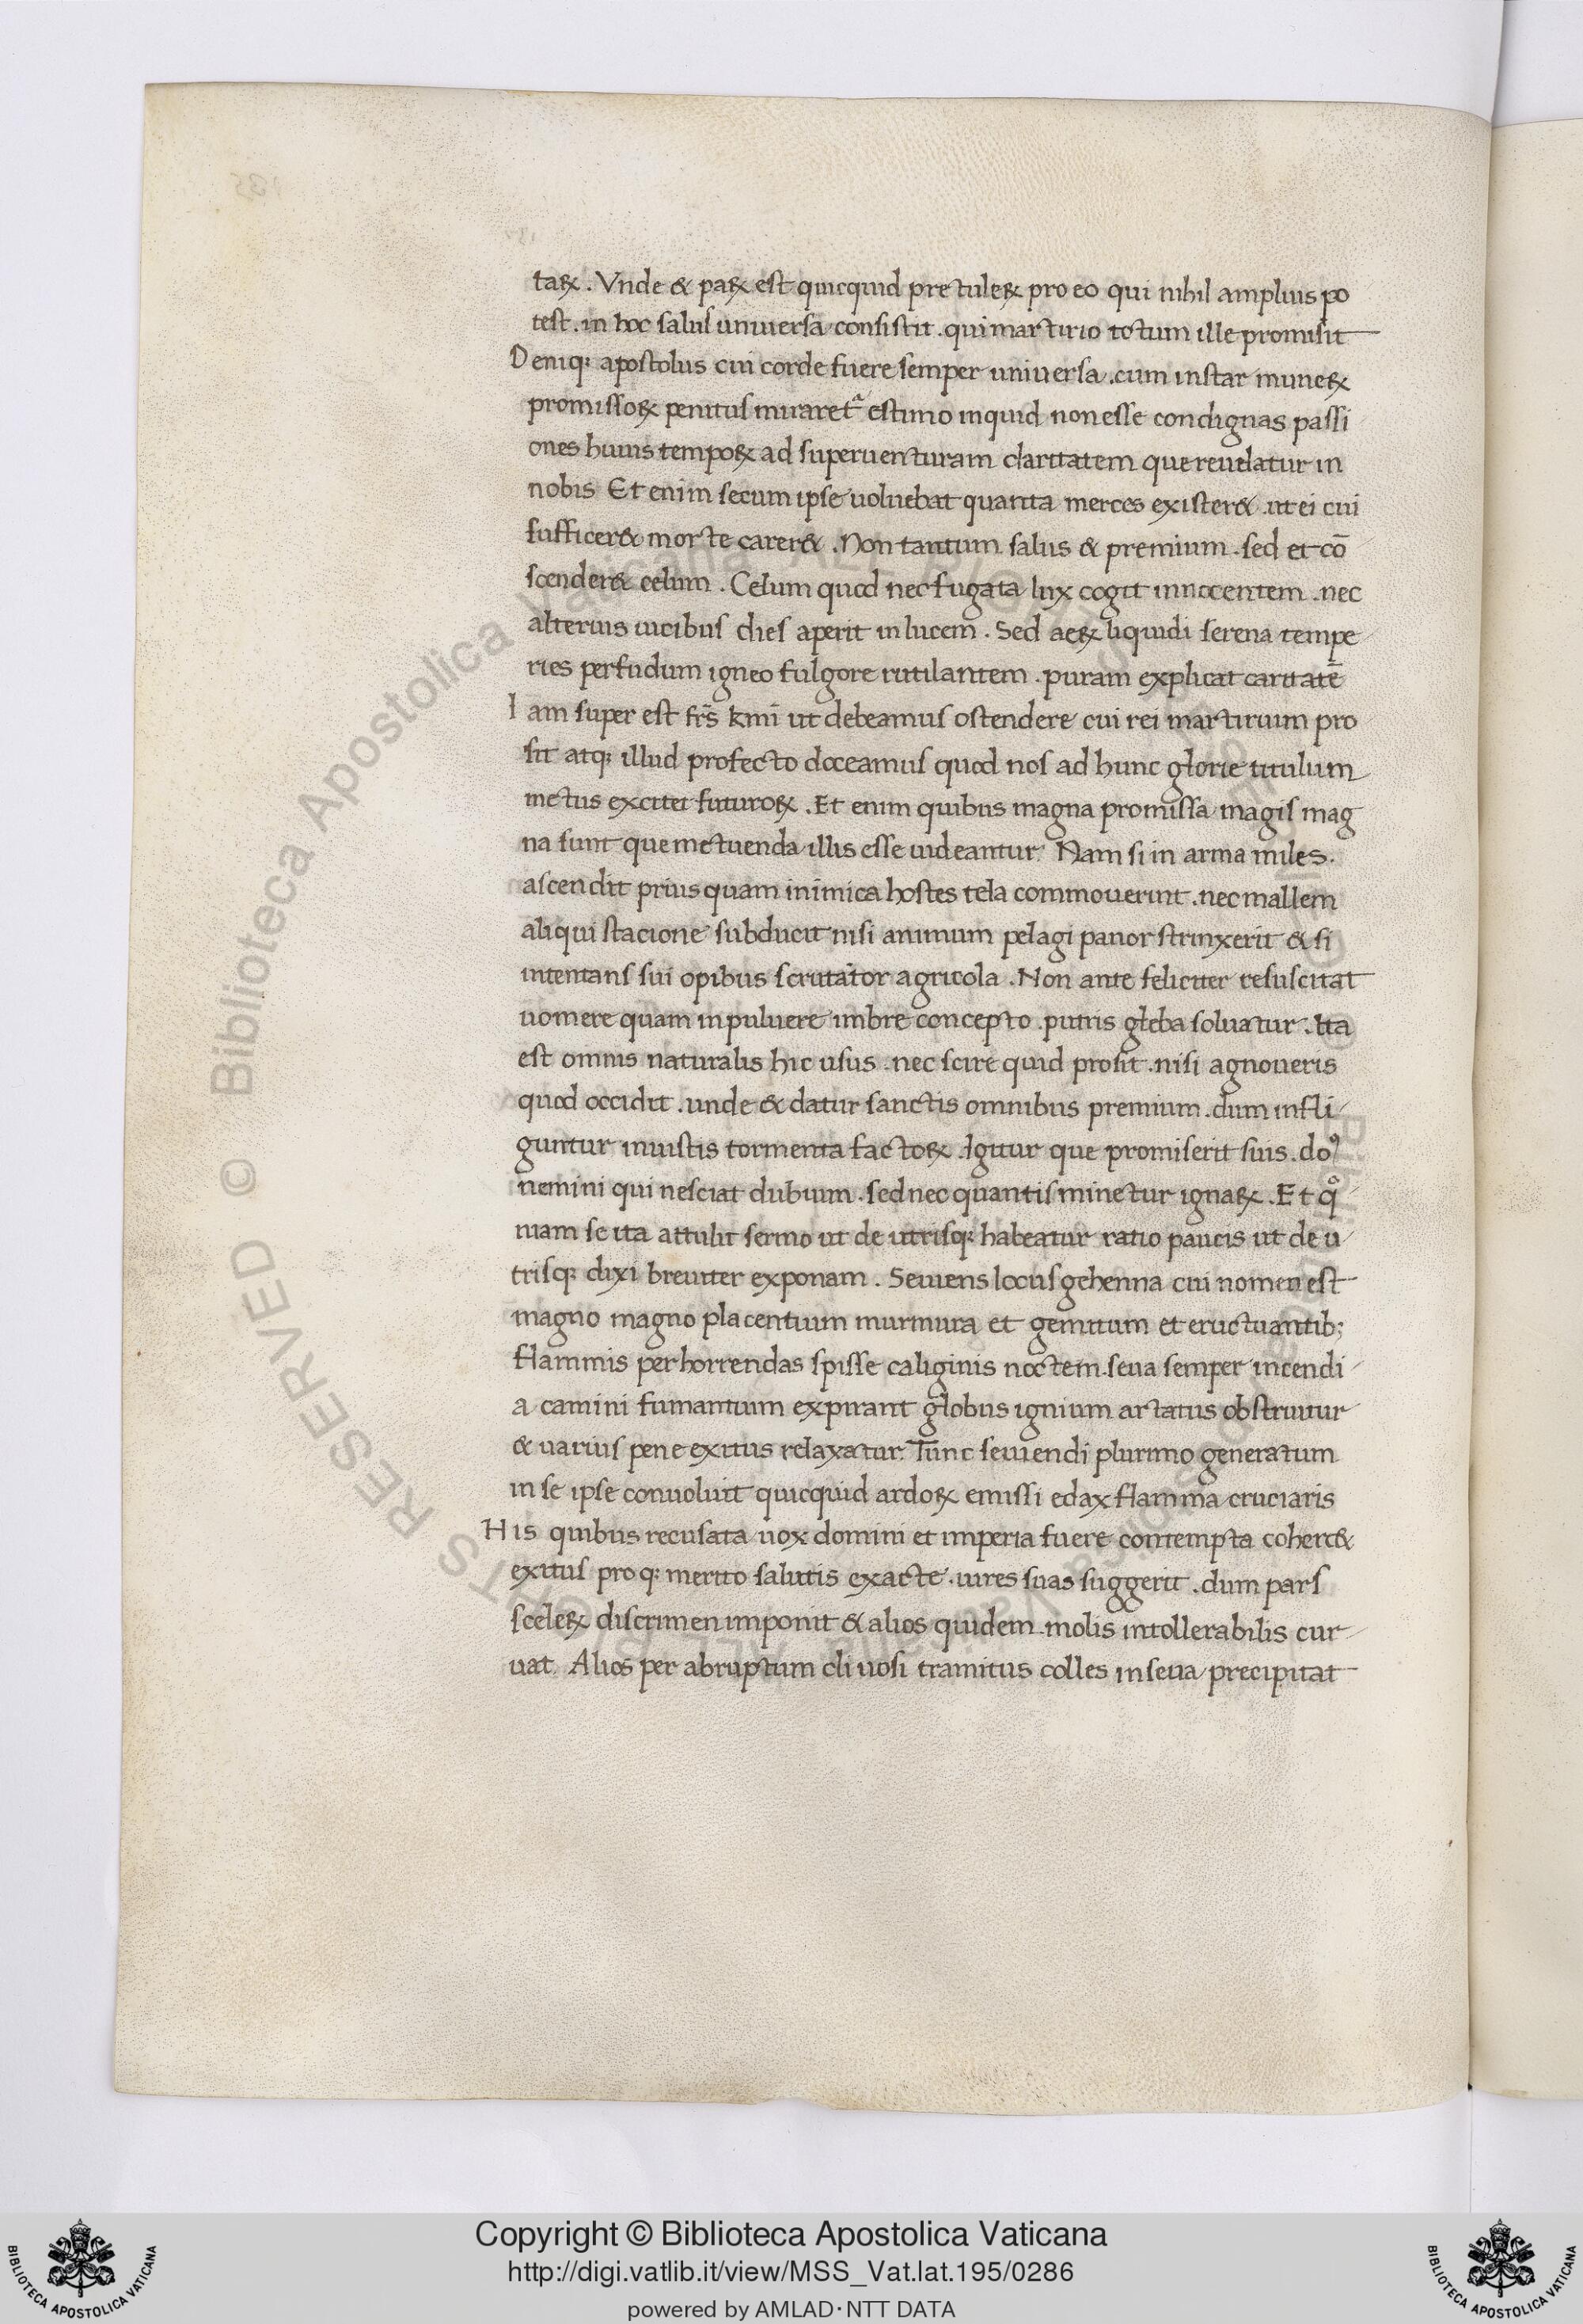 taꝝ. Vnde & paꝝ est quicquid pretuleꝝ pro eo qui nihil amplius po
test. in hoc salus uniuersa consistit. qui martirio totum ille promisit
Deniq; apostolus cui corde fuere semper uniuersa. cum instar muneꝝ
promissoꝝ penitus miraret᷑ estimo inquid non esse condignas passi
ones huius tempoꝝ ad superuenturam claritatem que reuelatur in
nobis Et enim secum ipse uoluebat quanta merces exister&. ut ei cui
sufficer& morte carer&. Non tantum salus & premium. sed et cō
scender& celum. Celum quod nec fugata lux cogit innocentem. nec
alterius uicibus dies aperit in lucem. Sed aeꝝ liquidi serena tempe
ries perfudum igneo fulgore rutilantem. puram explicat caritatē
Iam super est frs̄ kmī ut debeamus ostendere cui rei martirium pro
sit atq; illud profecto doceamus quod nos ad hunc glorie titulum
metus excitet futuroꝝ. Et enim quibus magna promissa magis mag
na sunt que metuenda illis esse uideantur. Nam si in arma miles.
ascendit prius quam inimica hostes tela commouerint. nec mallem
aliqui stacione subducit nisi animum pelagi panor strinxerit & si
intentans sui opibus scrutator agricola. Non ante feliciter resuscitat
uomere quam in puluere imbre concepto. putris gleba soluatur. Ita
est omnis naturalis hic usus. nec scire quid prosit. nisi agnoueris
quod occidit. unde & datur sanctis omnibus premium. dum infli
guntur iniustis tormenta factoꝝ. Igitur que promiserit suis. do᷒
nemini qui nesciat dubium. sed nec quantis minetur ignaꝝ. Et qͦ
niam se ita attulit sermo ut de utrisq; habeatur ratio paucis ut de u
trisq; dixi breuiter exponam. Seuiens locus gehenna cui nomen est
magno magno placentium murmura et gemitum et eructuantib;
flammis per horrendas spisse caliginis noctem. seua semper incendi
a camini fumantium expirant globus ignium artatus obstruitur
& uarius pene exitus relaxatur. Tunc seuiendi plurimo generatum
in se ipse conuoluit quicquid ardoꝝ emissi edax flamma cruciaris
His quibus recusata uox domini et imperia fuere contempta coherc&
exitus pro q; merito salutis exacte. uires suas suggerit. dum pars
sceleꝝ discrimen imponit & alios quidem. molis intollerabilis cur
uat. Alios per abruptum cliuosi tramitus colles in seua precipitat
Copyright © Biblioteca Apostolica Vaticana
http://digi.vatlib.it/view/MSS_Vat.lat.195/0286
powered by AMLAD·NTT DATA
BIBLIOTECA APOSTOLICA VATICANA
BIBLIOTECA APOSTOLICA VATICANA